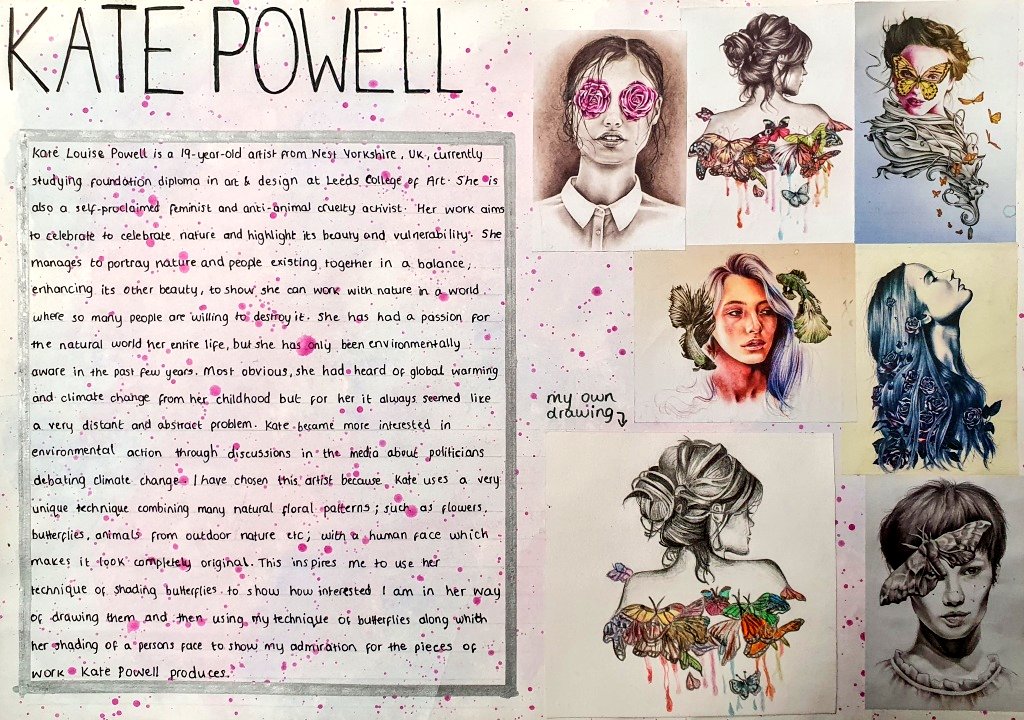 KATE POWELL
Kate Louise Powell is a 19-year-old artist from West Yorkshire, UK, currently
studying foundation diploma in art & design at Leeds College of Art. She is
also a self-proclaimed feminist and anti-animal cruelty activist. Her work aims
to celebrate to celebrate nature and highlight its beauty and vulnerability. She
manages to portray nature and people existing together in a balance,
enhancing its other beauty, to show she can work with nature in a world
where so many people are willing to destroy it. She has had a passion for
the natural world her entire life, but she has only been environmentally
aware in the past few years. Most obvious, she had heard of global warming
and climate change from her childhood but for her it always seemed like
a very distant and abstract problem. Kate became more interested in
environmental action through discussions in the media about politicians
debating climate change. I have chosen this artist because Kate uses a very
unique technique combining many natural floral patterns; such as flowers,
butterflies, animals from outdoor nature etc; with a human face which
makes it look completely original. This inspires me to use her
technique of shading butterflies to show how interested I am in her way
of drawing them and then using my technique of butterflies along which
her shading of a persons face to show my admiration for the pieces of
work Kate Powell produces.
my own
drawing